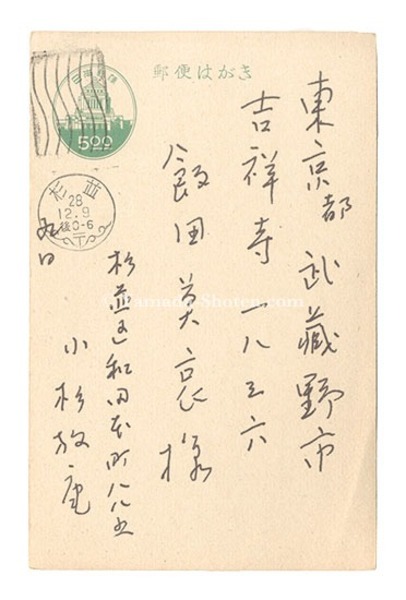 郵便はがき
日本郵便
5.00
杉並
28
12.9
後0-6
東京都武蔵野市
吉祥寺一八三六
飯田莫哀様
杉並区和田本町
小杉放庵
九日
Yamada-Shoten.com